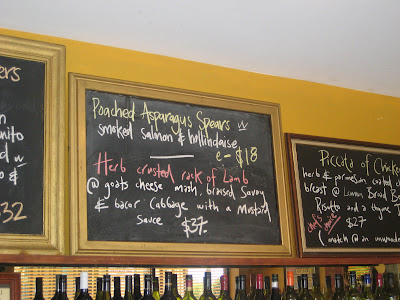 ers
n
onito
d w
o &
32
Poached Asparagus Spears w
smoked salmon & hollindaise
e - $18
Herb crusted rack of Lamb
@ goats cheese mash, braised Savoy
& bacor Cabbage with a Mustard
Sauce $37.
Piccata of Chicken
herb & parmesan coated ch
breast @ Lemon Broad Be
Risotto and a thyme
chef's choice
$27
(match @ an unwoode